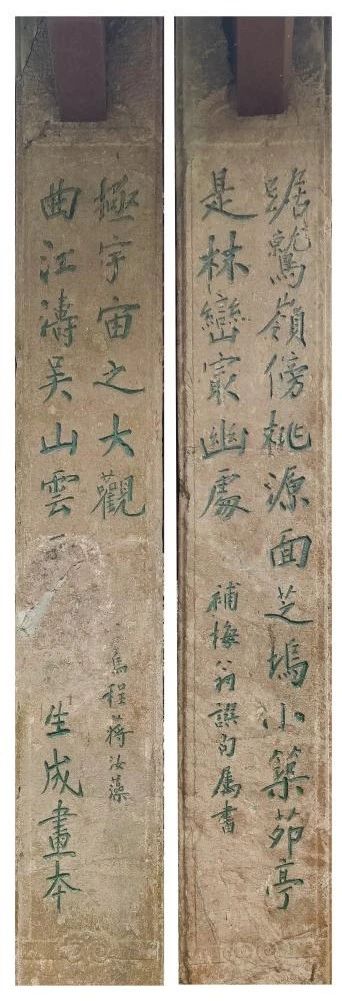 踞鷲嶺傍桃源面芝塢小築茆亭
是林巒㝡幽處
補梅翁譔句属書
曲江濤吳山雲生成畫本
極宇宙之大觀
烏程蔣汝藻